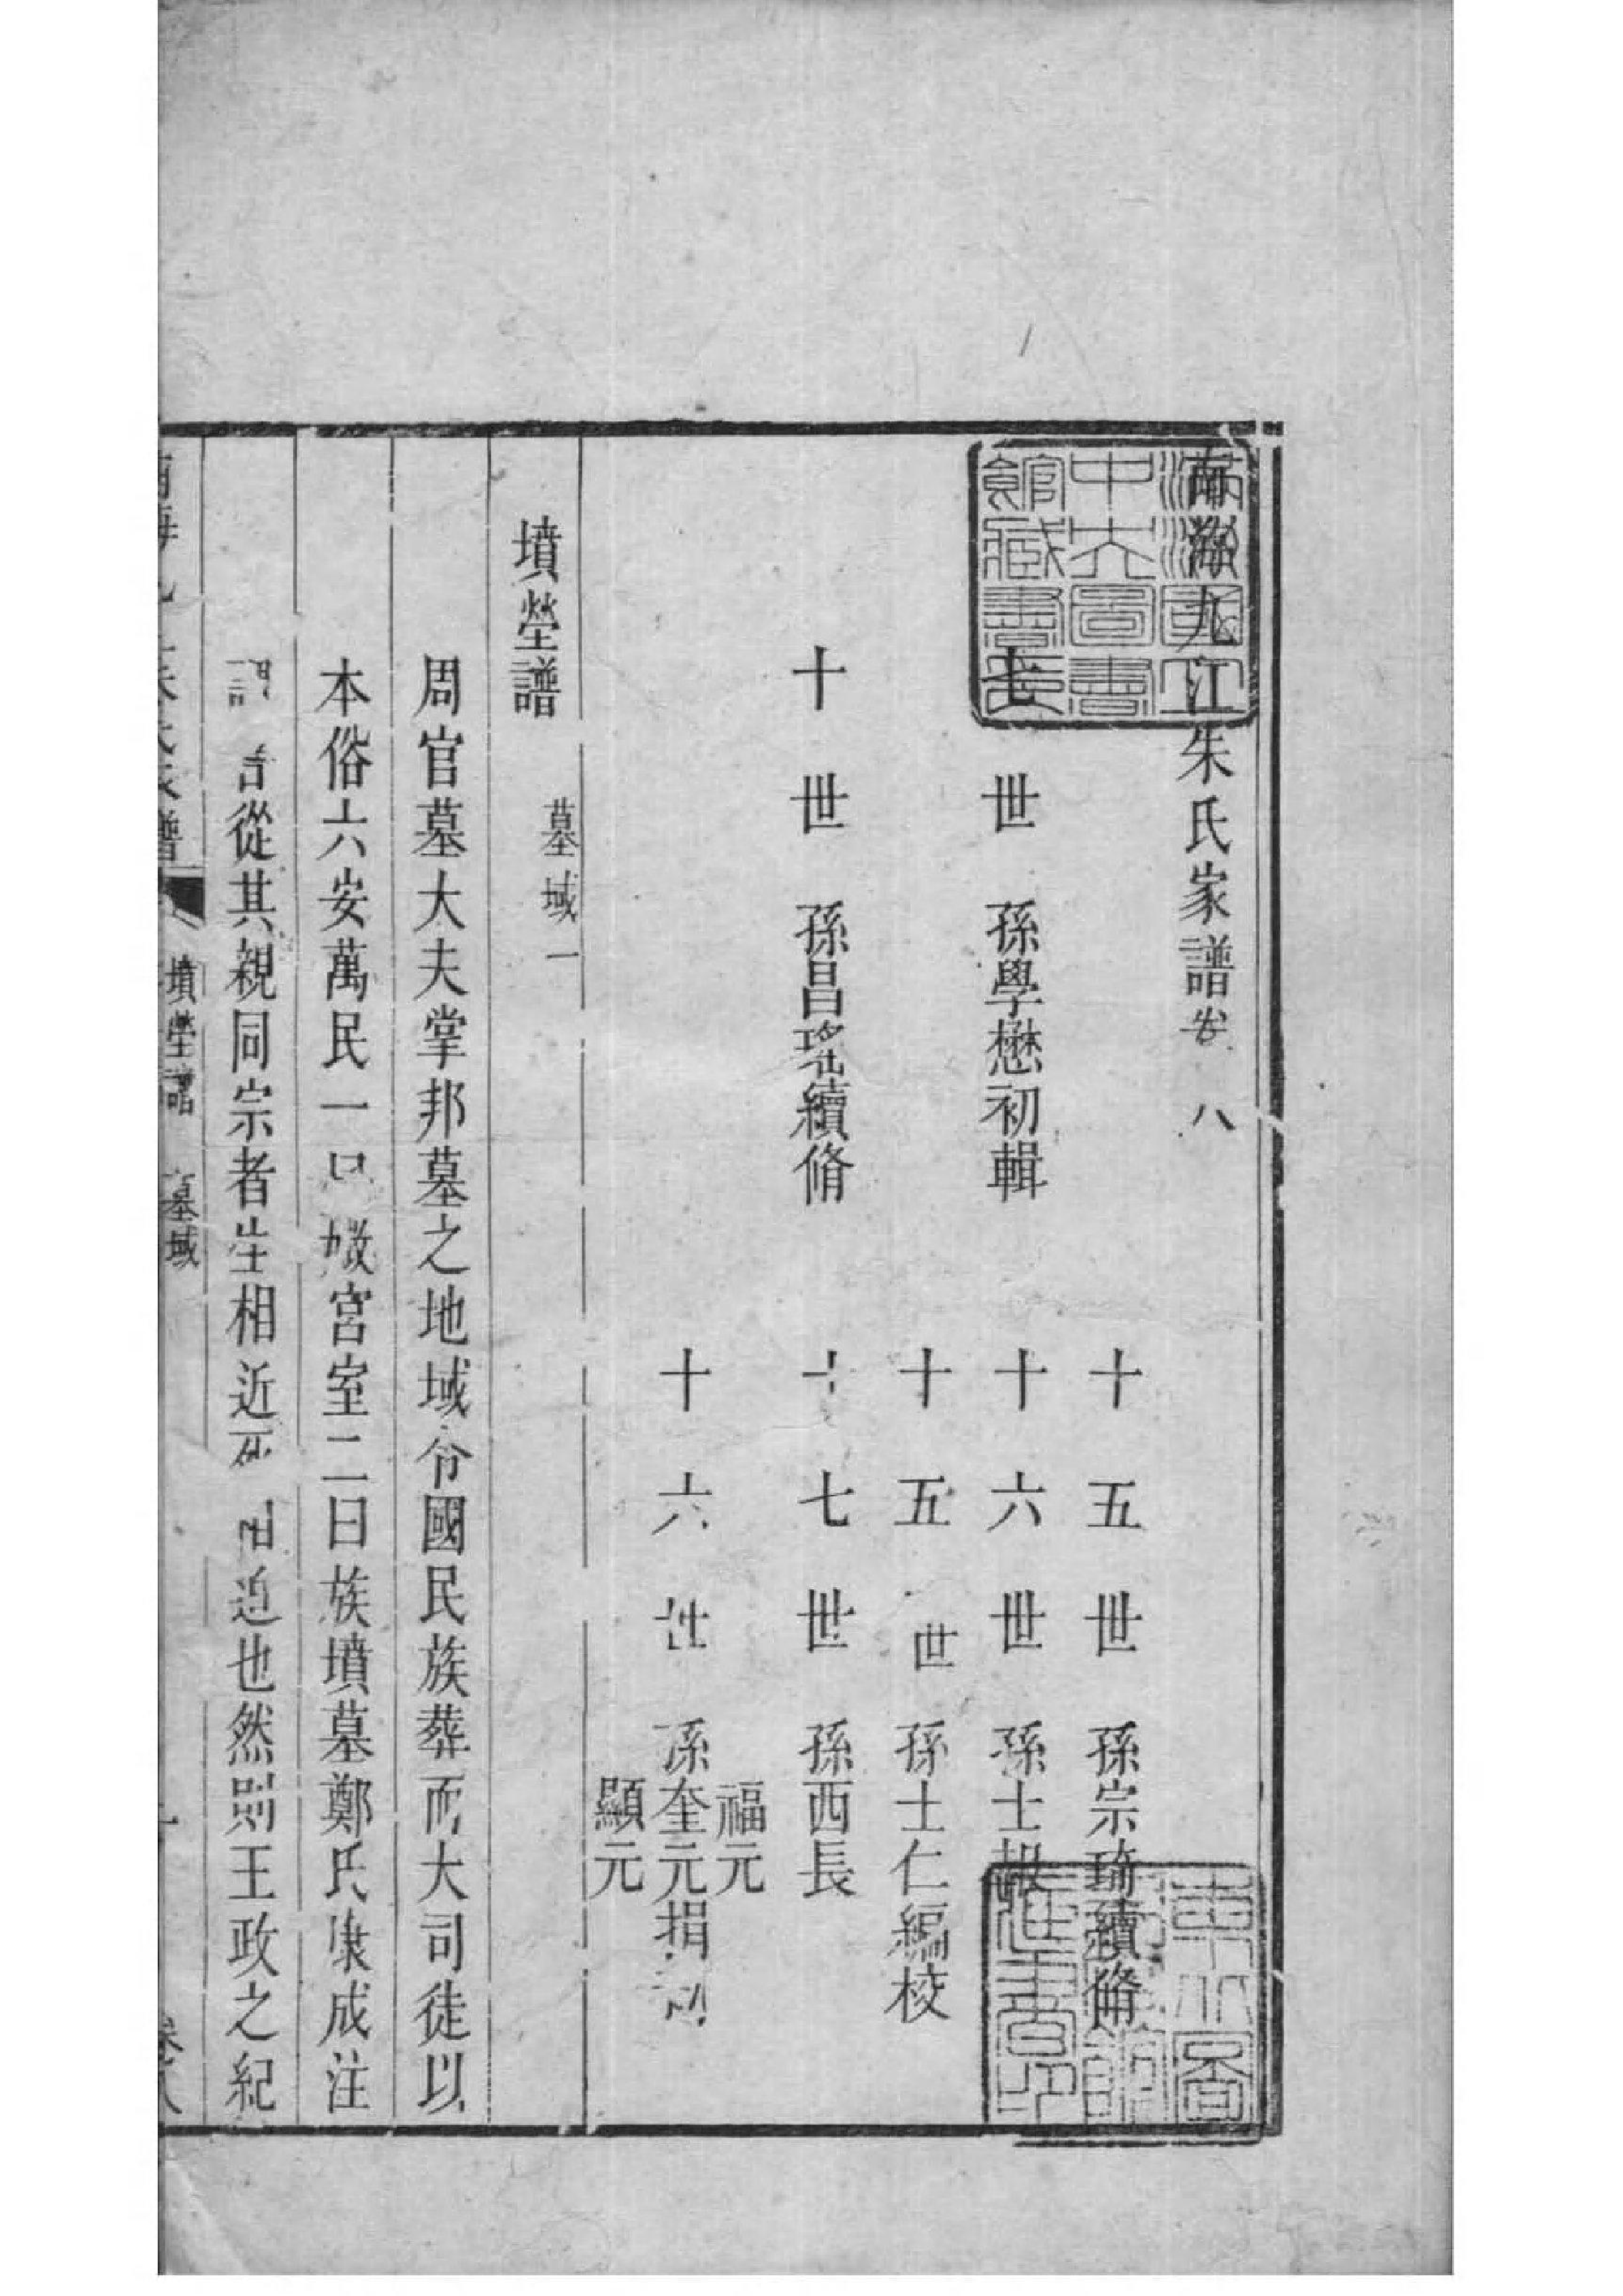 南海九江朱氏家譜卷八
十五世　孫宗琦續脩
七世　孫學懋初輯
十六世　孫士報
十五世　孫士仁編校
十世　孫昌瑤續脩
十七世　孫西長
福元
十六世　孫奎元捐刻
顯元
墳塋譜　墓域一
周官墓大夫掌邦墓之地域令國民族葬而大司徒以
本俗六安萬民一曰媺宮室二曰族墳墓鄭氏康成注
謂　言從其親同宗者生相近死相迫也然則王政之紀
南海九江朱氏家譜　墳塋譜　墓域　一　卷八
滿洲國立中央圖書館藏書